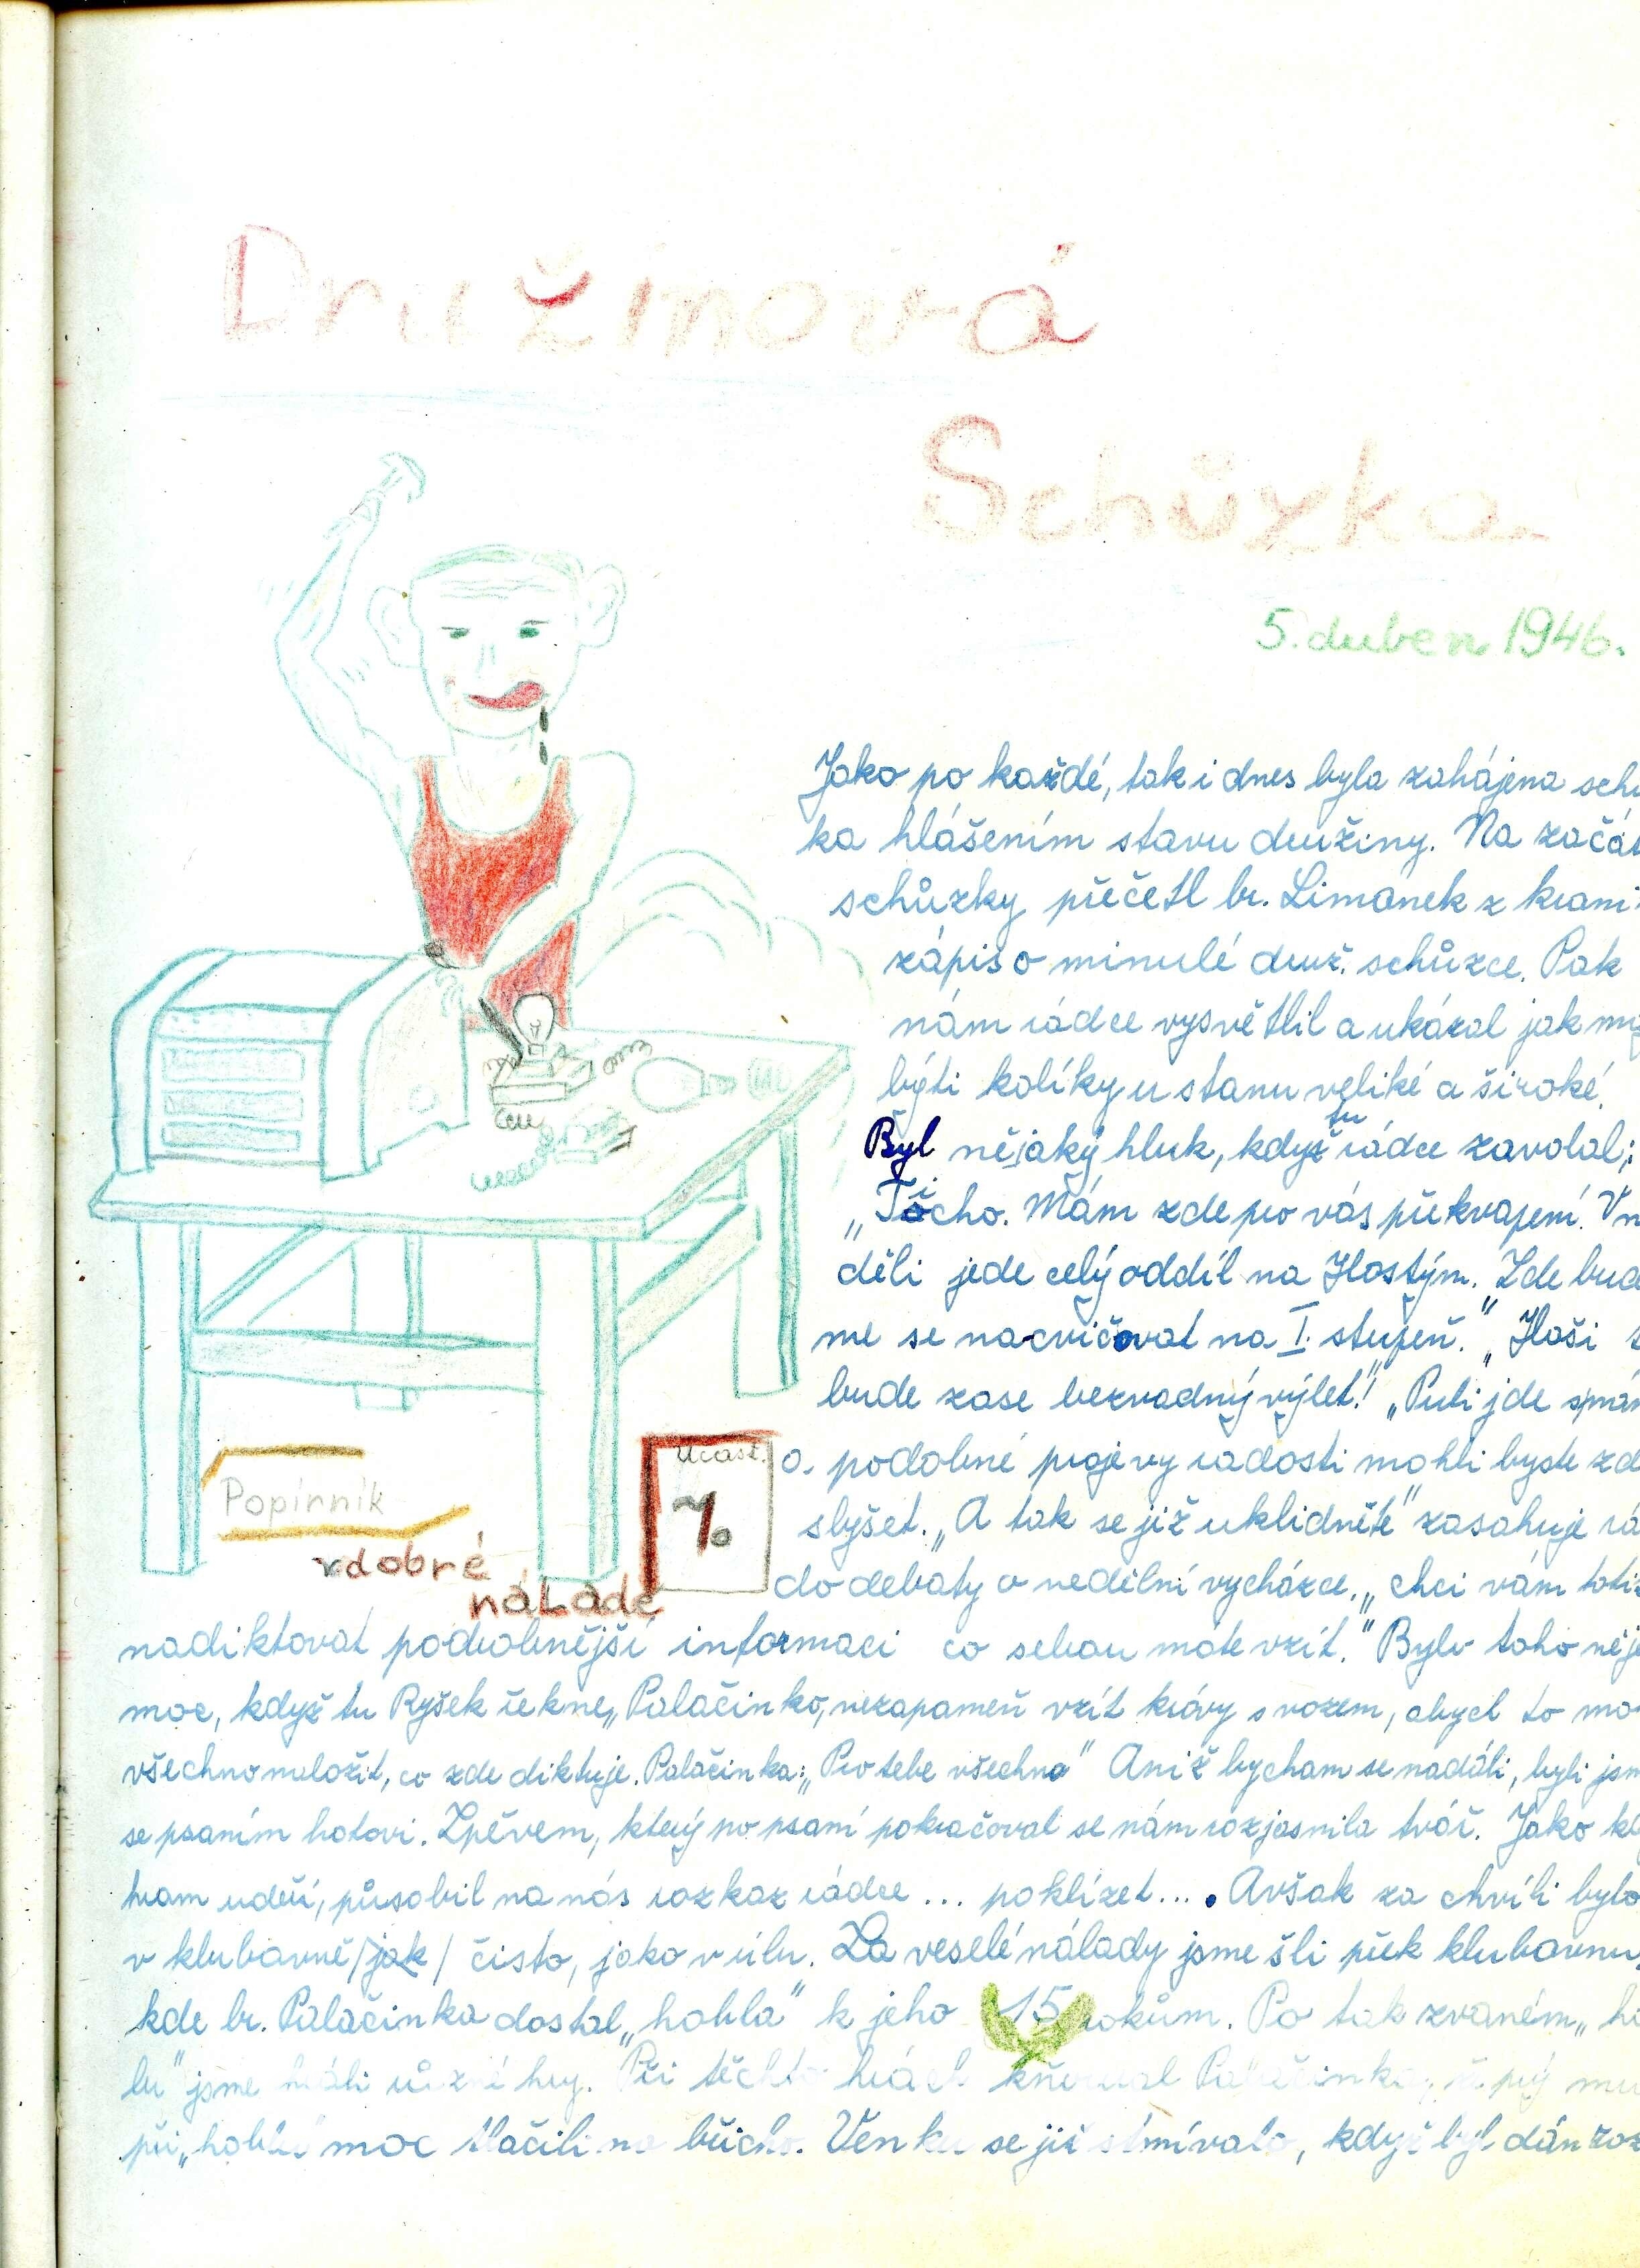 Družinová
Schůzka
5. duben 1946.
Jako po každé, tak i dnes byla zahájena schů
ka hlášením stavu družiny. Na začát
schůzky přečetl br. Limanek z kroni
zápis o minulé druž. schůzce. Pak
nám rádce vysvětlil a ukázal jak
býti kolíky u stanu veliké a široké.
Byl nějaký hluk, když tu rádce zavolal;
„Ticho. Mám zde pro vás překvapení. V n
děli jede celý oddíl na Hostýn. Zde bude
me se nacvičovat na I. stupeň.“ „Hoši
bude zase bezvadný výlet!“ „Puti jde
a. podobné projevy radosti mohli byste zd
slyšet. „A tak se již uklidněte“ zasahuje rá
do debaty o nedělní vycházce, „chci vám toti
Účast.
%
Popírník
v dobré
náladě
nadiktovat podrobnější informaci co sebou máte vzít.“ Bylo toho něja
moc, když tu Ryšek řekne „Palačinko, nezapomeň vzít krávy s vozem, abych to mo
všechno naložit, co zde diktuje. Palačinka: „Pro tebe všechno“ Aniž bychom se nadáli, byli jsm
se psaním hotovi. Zpěvem, který po psaní pokračoval se nám rozjasnila tvář. Jako
hrom udeří, působil na nás rozkaz rádce ... poklízet.... Avšak za chvíli bylo
v klubovně /jak/ čisto, jako v úlu. Za veselé nálady jsme šli před klubovnu,
kde br. Palačinka dostal „hobla“ k jeho 15 rokům. Po tak zvaném „ho
lu“ jsme hráli různé hry. Při těchto hrách kňoural Palačinka, že prý mu
při „hoblu“ moc tlačili na břicho. Venku se již stmívalo, když byl dán roz